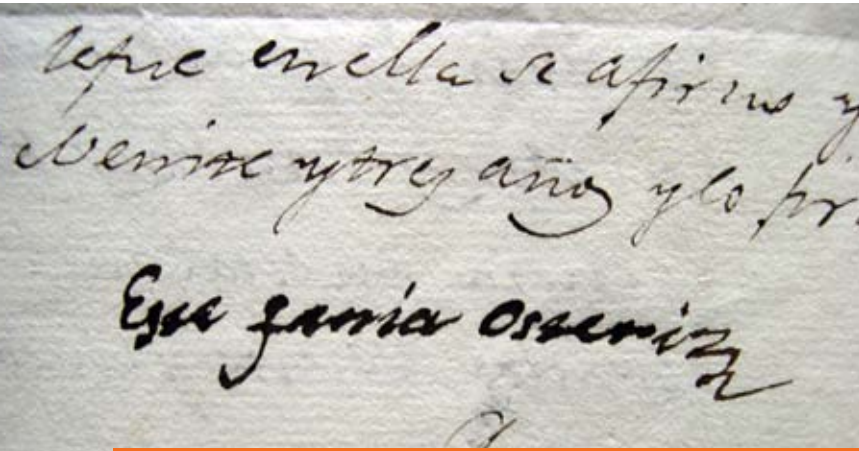 que en ella se afirmo y
de Veinte y tres años y lo fir
Estefania Osteriz